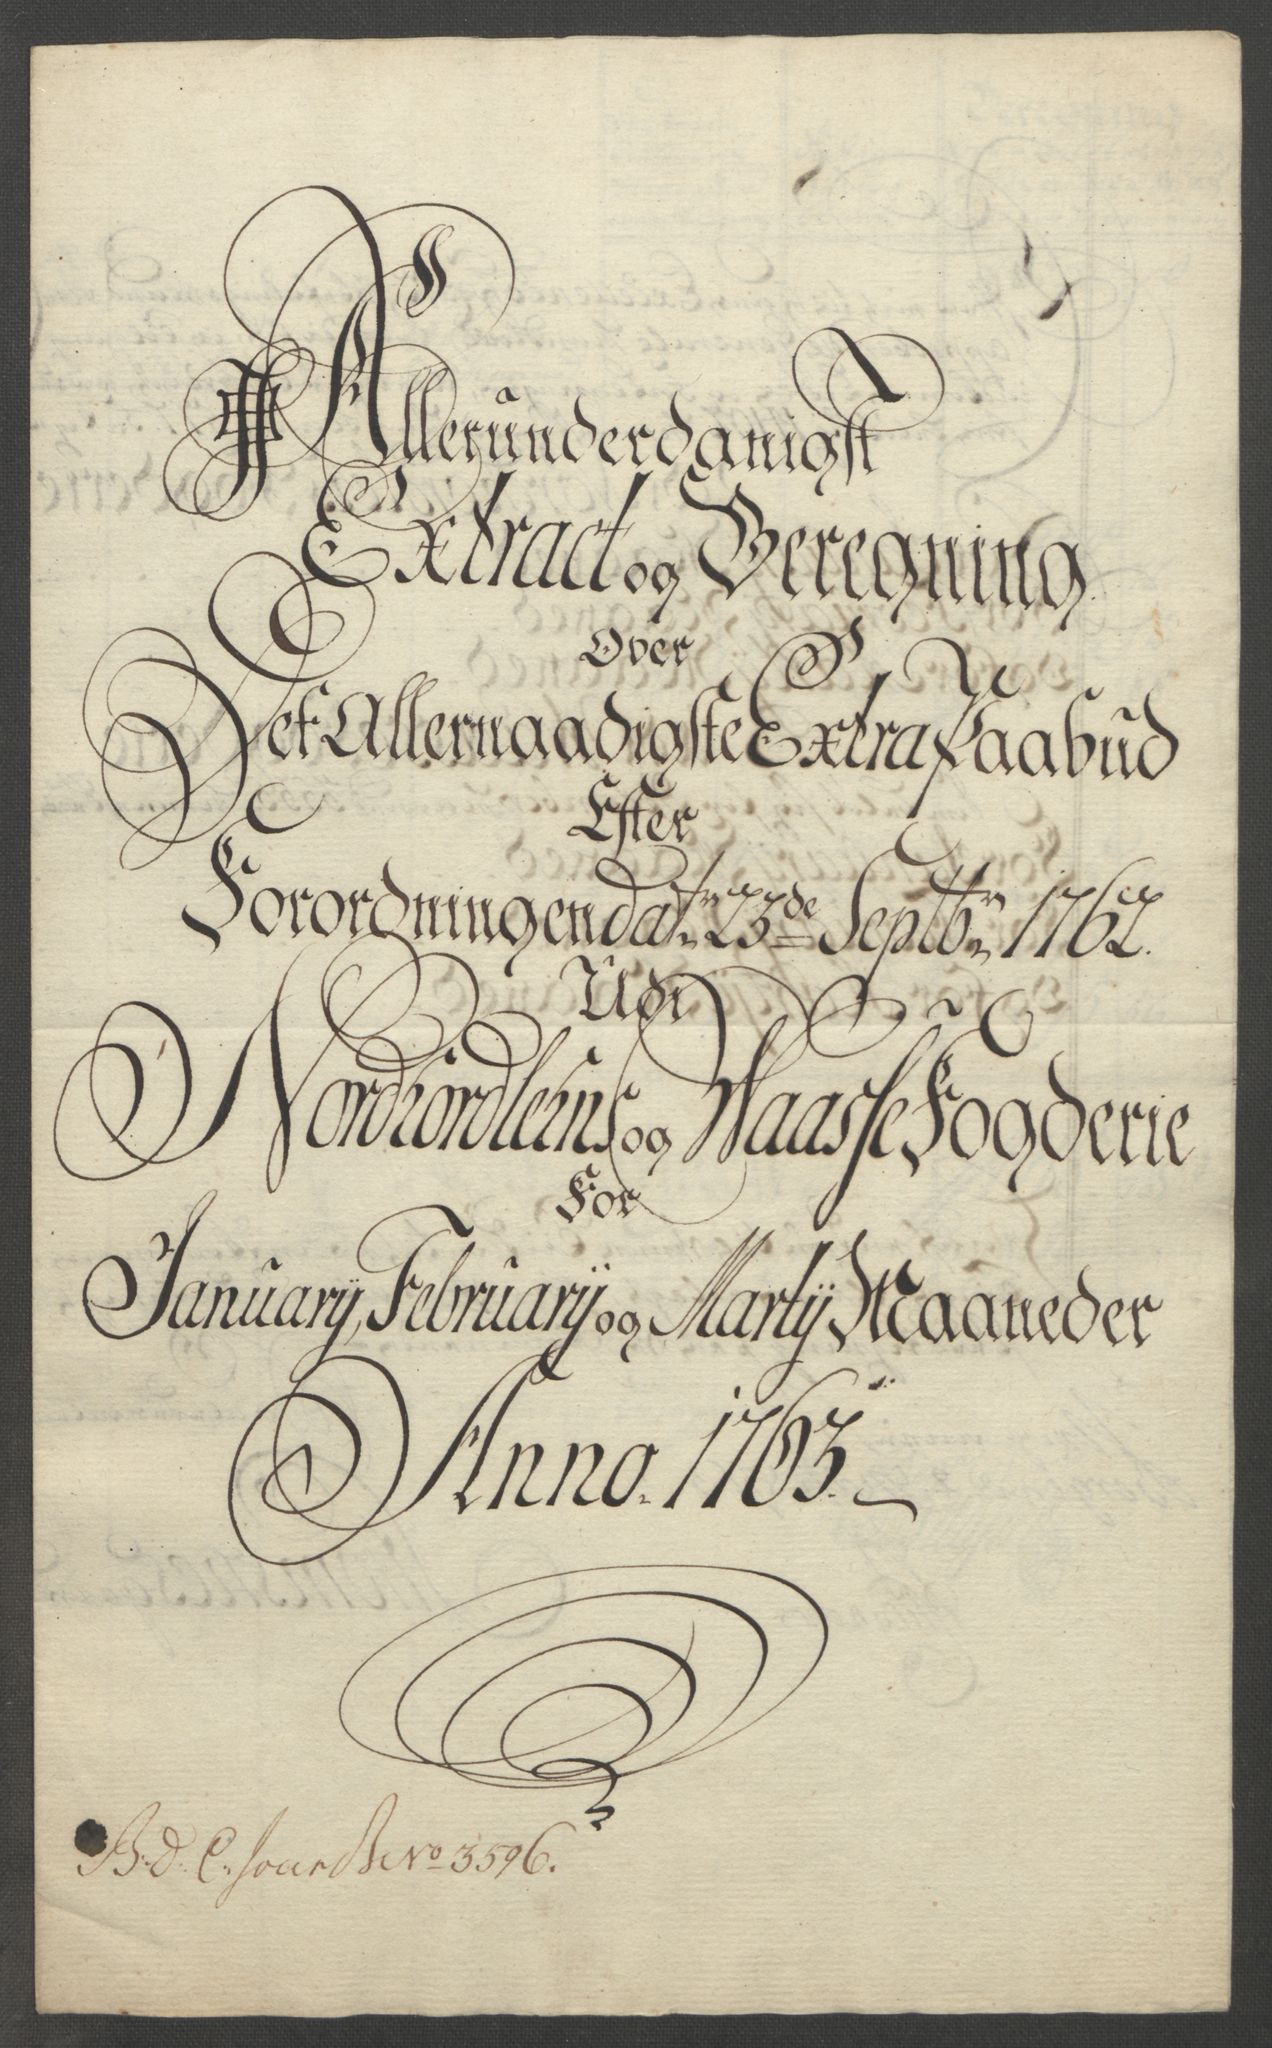 Allerunderdanigst
Extract og Beregning
Over
Det Allernaadigste Extra Paabud
Efter
Forordningen dat: 23de Septbr 1762.
Udi
Nordhordlehns og Waasse Fogderie
For
Januarij, Februarij og Martij Maaneder
Anno. 1763.
B: d: C. Jour No 3596.